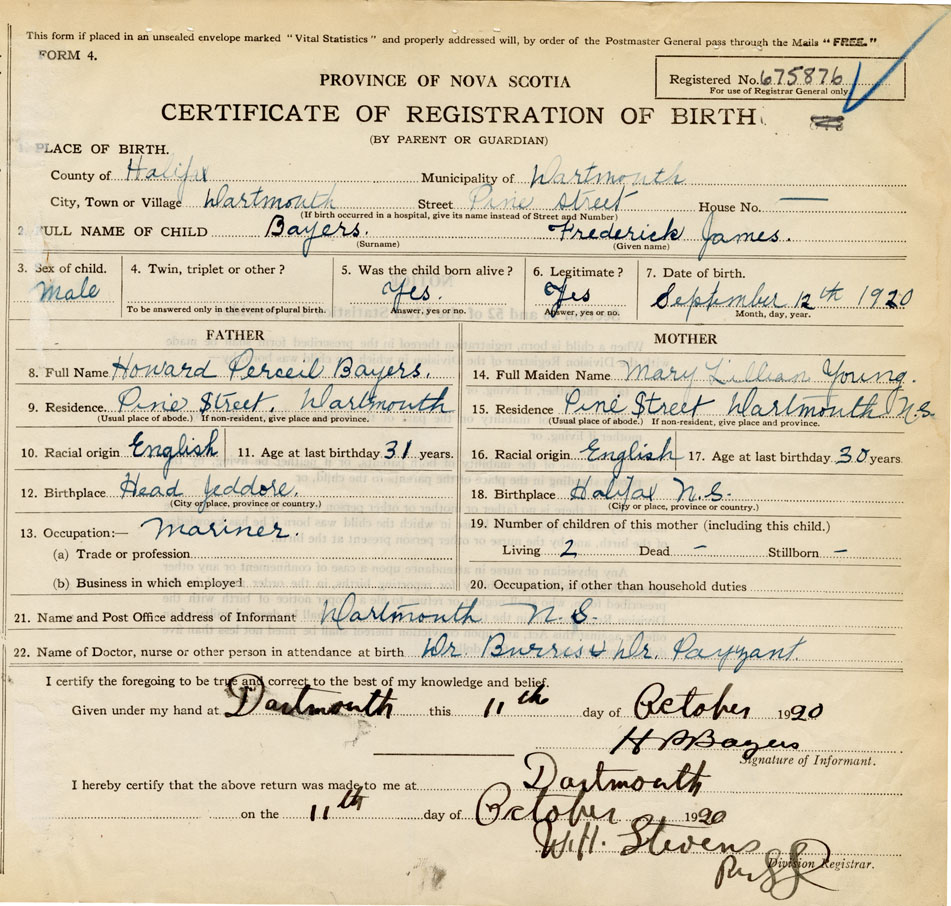 This form if placed in an unsealed envelope marked "Vital Statistics" and properly addressed will, by order of the Postmaster General pass through the Mails "FREE."
FORM 4.
PROVINCE OF NOVA SCOTIA
Registered No. 675876
For use of Registrar General only.
CERTIFICATE OF REGISTRATION OF BIRTH
(BY PARENT OR GUARDIAN)
PLACE OF BIRTH.
County of Halifax Municipality of Dartmouth
City, Town or Village Dartmouth Street Pine Street House No. —
(If birth occurred in a hospital, give its name instead of Street and Number)
2. FULL NAME OF CHILD Bayers. Frederick James.
(Surname) (Given name)
3. Sex of child. 4. Twin, triplet or other? 5. Was the child born alive? 6. Legitimate? 7. Date of birth.
Male Yes. Yes September 12th 1920
To be answered only in the event of plural birth. Answer, yes or no. Answer, yes or no. Month, day, year.
FATHER MOTHER
8. Full Name Howard Perceil Bayers. 14. Full Maiden Name Mary Lillian Young.
9. Residence. Pine Street, Dartmouth 15. Residence Pine Street Dartmouth N.S.
(Usual place of abode.) If non-resident, give place and province. (Usual place of abode.) If non-resident, give place and province.
10. Racial origin English 11. Age at last birthday 31 years. 16. Racial origin English 17. Age at last birthday 30 years.
12. Birthplace Head Jeddore. 18. Birthplace Halifax N.S.
(City or place, province or country.) (City or place, province or country.)
13. Occupation:— Mariner. 19. Number of children of this mother (including this child.)
(a) Trade or profession Living 2 Dead – Stillborn –
(b) Business in which employed 20. Occupation, if other than household duties
21. Name and Post Office address of Informant Dartmouth N.S.
22. Name of Doctor, nurse or other person in attendance at birth Dr. Burris & Dr. Payzant.
I certify the foregoing to be true and correct to the best of my knowledge and belief.
Given under my hand at Dartmouth this 11th day of October 1920
H P Bayers
Signature of Informant.
I hereby certify that the above return was made to me at Dartmouth
on the 11th day of October 1920
W.H. Stevens
Division Registrar.